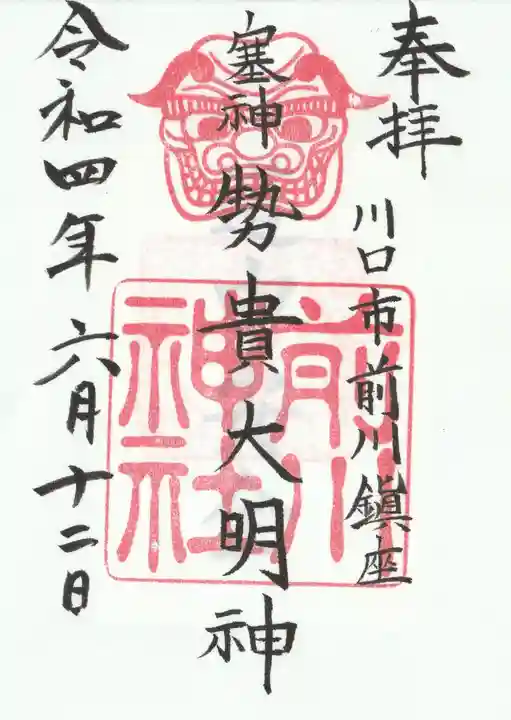 奉拝
川口市前川鎮座
塞神
勢貴大明神
令和四年六月十二日
前川
神社